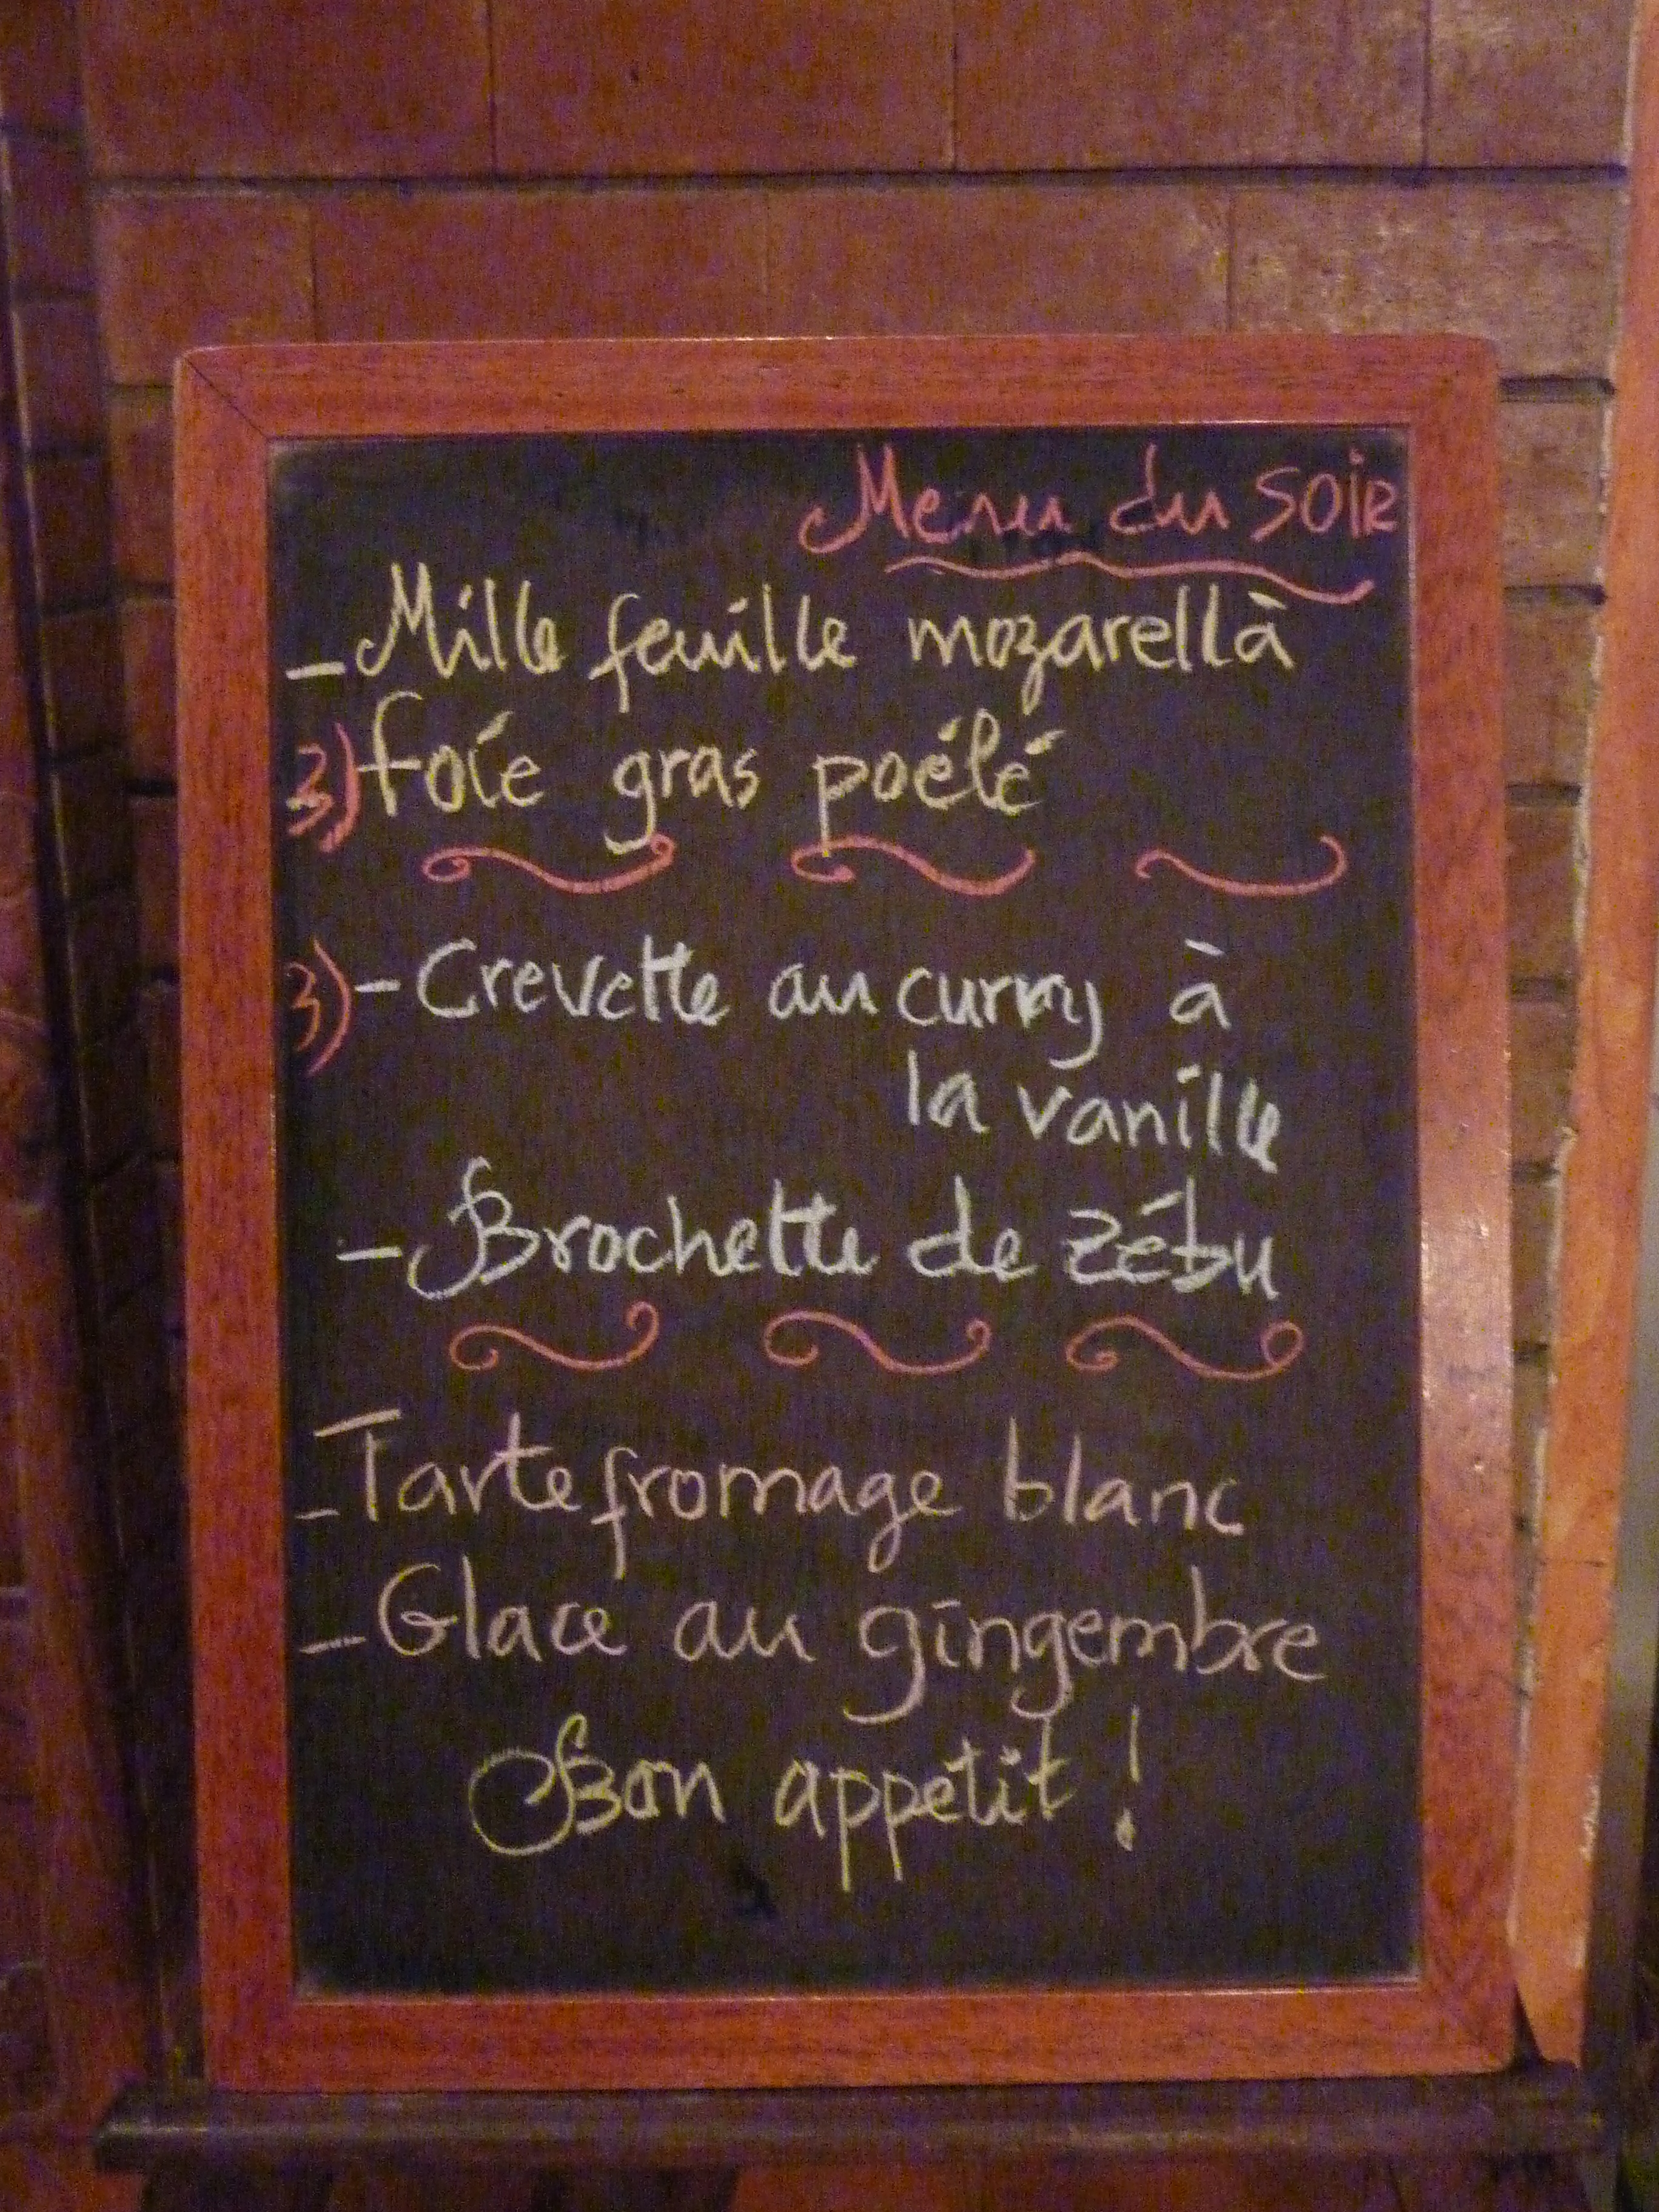 Menu du soir
- Mille feuille mozarella
3) foie gras poélé
3) - Crevette au curry à
la vanille
- Brochette de zébu
- Tarte fromage blanc
- Glace au gingembre
Bon appetit !